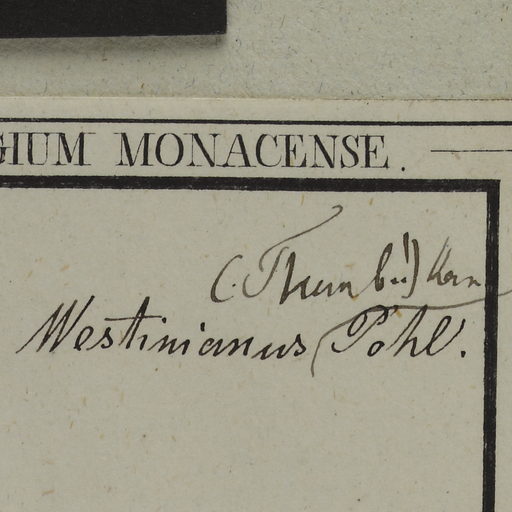 GIUM MONACENSE.
(Thunb.!) Kern
Westinianus Pohl.